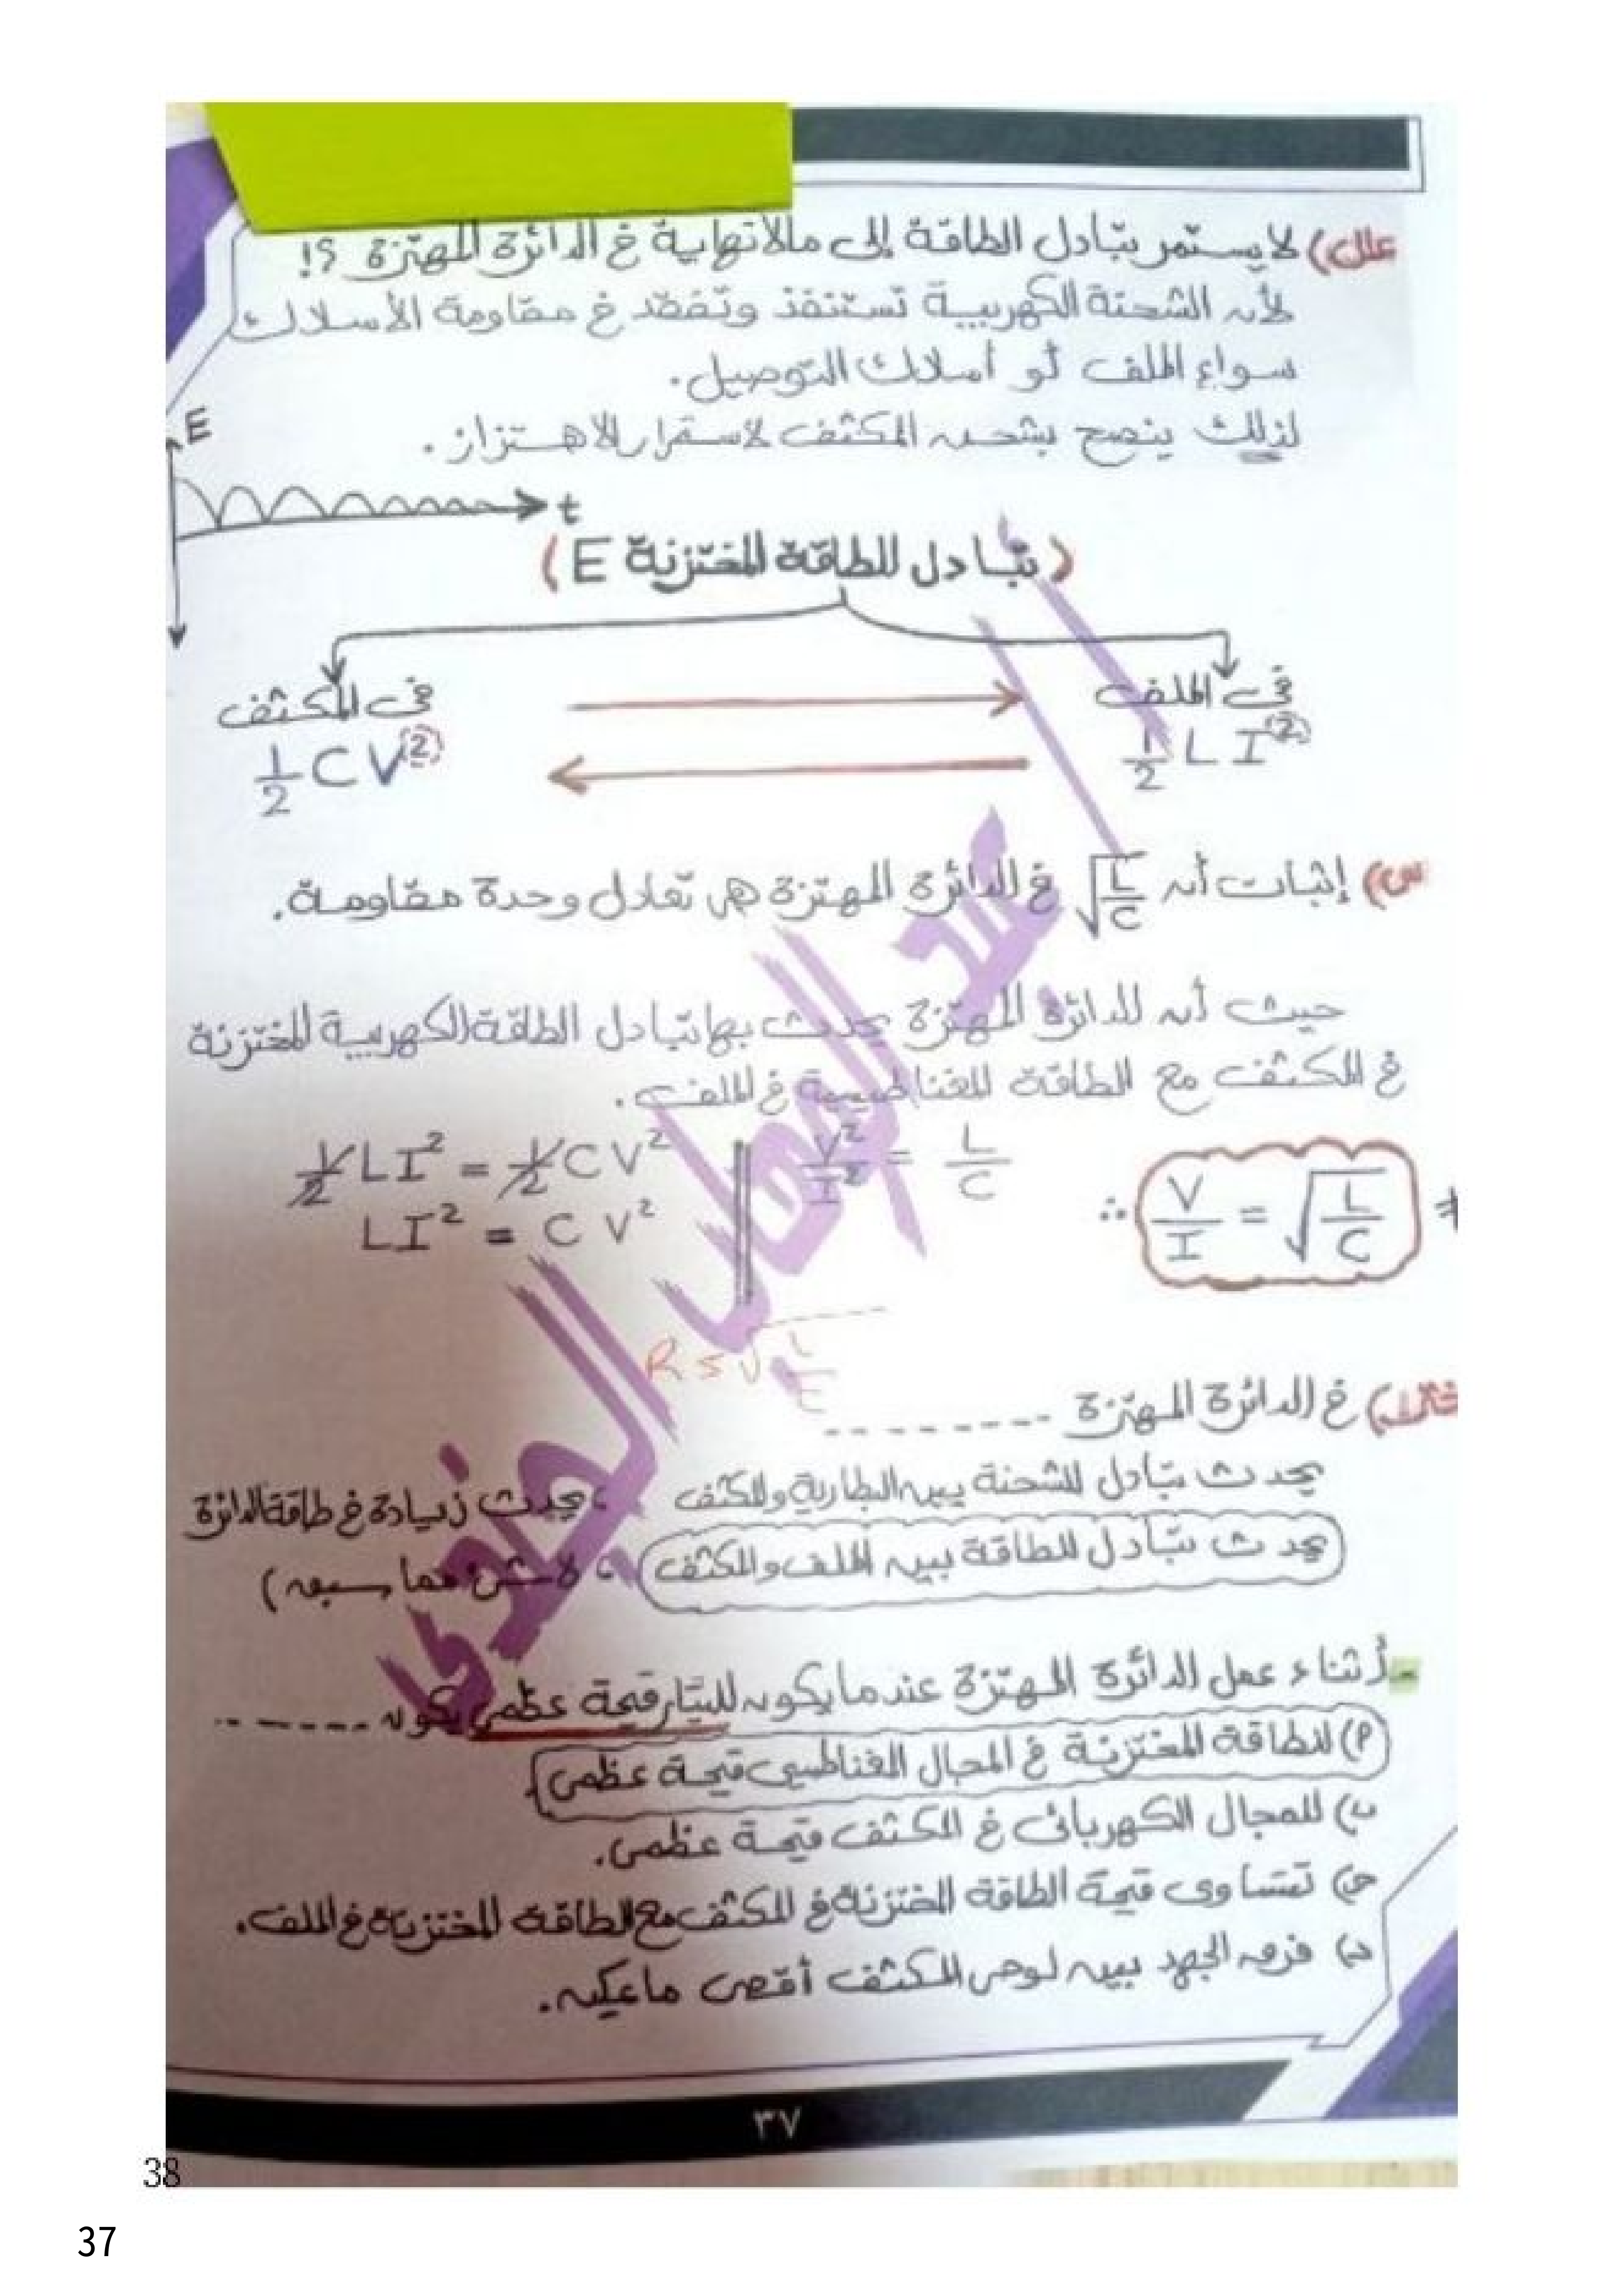 علل) لا يستمر تبادل الطاقة إلى مالانهاية في الدائرة المهتزة ؟!
لأن الشحنة الكهربية تستنفذ وتفقد في مقاومة الأسلاك
سواء الملف أو أسلاك التوصيل.
لذلك ينصح بشحن المكثف لاستمرار الاهتزاز.
E
t
(تبادل للطاقة المختزنة E)
في الملف
في المكثف
½ L I²
½ C V²
س) إثبات أن √(L/C) في الدائرة المهتزة هي تعادل وحدة مقاومة.
حيث أن الدائرة المهتزة يحدث بها تبادل الطاقة الكهربية المختزنة
في المكثف مع الطاقة المغناطيسية في الملف.
½ L I² = ½ C V² || V²/I² = L/C
L I² = C V² ∴ V/I = √(L/C) #
في الدائرة المهتزة -------
يحدث تبادل للشحنة بين البطارية والمكثف ، يحدث زيادة في طاقة الدائرة
يحدث تبادل للطاقة بين الملف والمكثف ، لا شئ مما سبق )
- أثناء عمل الدائرة المهتزة عندما يكون للتيار قيمة عظمى يكون ------
أ) للطاقة المختزنة في المجال المغناطيسي قيمة عظمى
ب) للمجال الكهربائي في المكثف قيمة عظمى.
ج) تتساوى قيمة الطاقة المختزنة في المكثف مع الطاقة المختزنة في الملف.
د) فرق الجهد بين لوحي المكثف أقصى مايمكن.
٣٧
38
37